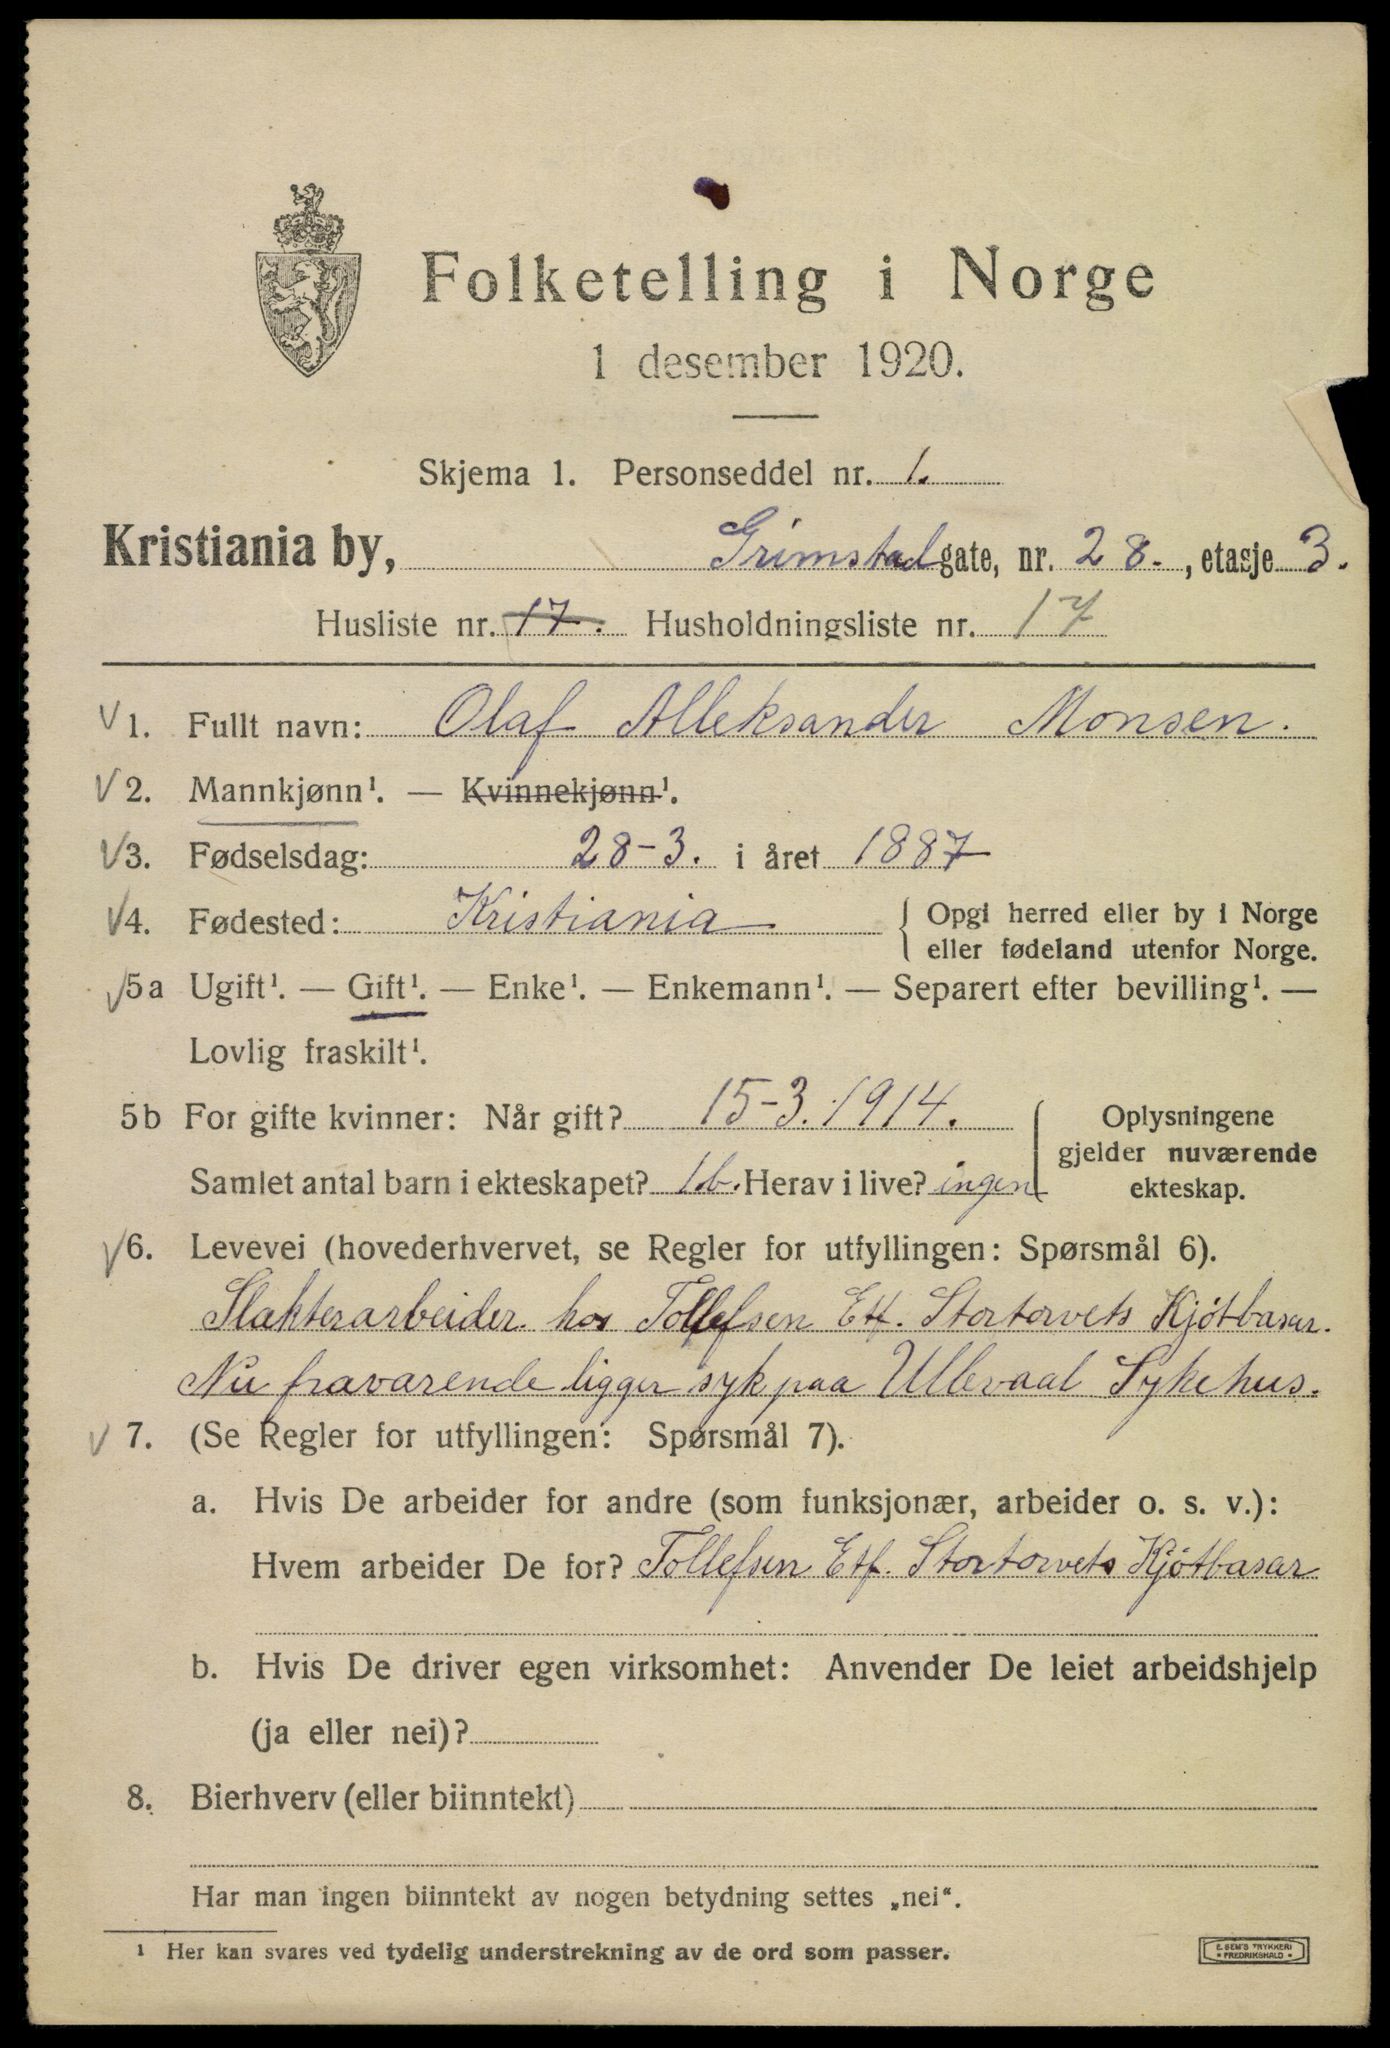 Folketelling i Norge
1 desember 1920.
Skjema 1. Personseddel nr. 1.
Kristiania by, Grimstad gate, nr. 28., etasje 3.
Husliste nr. 17. Husholdningsliste nr. 17
V 1. Fullt navn: Olaf Alleksander Monsen.
V 2. Mannkjønn¹. — Kvinnekjønn¹.
V 3. Fødselsdag: 28-3. i året 1887
V 4. Fødested: Kristiania { Opgi herred eller by i Norge
eller fødeland utenfor Norge.
V 5a Ugift¹. — Gift¹. — Enke¹. — Enkemann¹. — Separert efter bevilling¹. —
Lovlig fraskilt¹.
5b For gifte kvinner: Når gift? 15-3.1914. Oplysningene
gjelder nuværende
Samlet antal barn i ekteskapet? 1.b. Herav i live? ingen ekteskap.
V 6. Levevei (hovederhvervet, se Regler for utfyllingen: Spørsmål 6).
Slakterarbeider hos Tollefsen Etf. Stortorvets Kjøtbasar.
Nu fraværende ligger syk paa Ullevaal Sykehus.
V 7. (Se Regler for utfyllingen: Spørsmål 7).
a. Hvis De arbeider for andre (som funksjonær, arbeider o. s. v.):
Hvem arbeider De for? Tollefsen Etf. Stortorvets Kjøtbasar
b. Hvis De driver egen virksomhet: Anvender De leiet arbeidshjelp
(ja eller nei)?
8. Bierhverv (eller biinntekt)
Har man ingen biinntekt av nogen betydning settes „nei“.
¹ Her kan svares ved tydelig understrekning av de ord som passer.
E. SEM'S TRYKKERI
* FREDRIKSHALD *